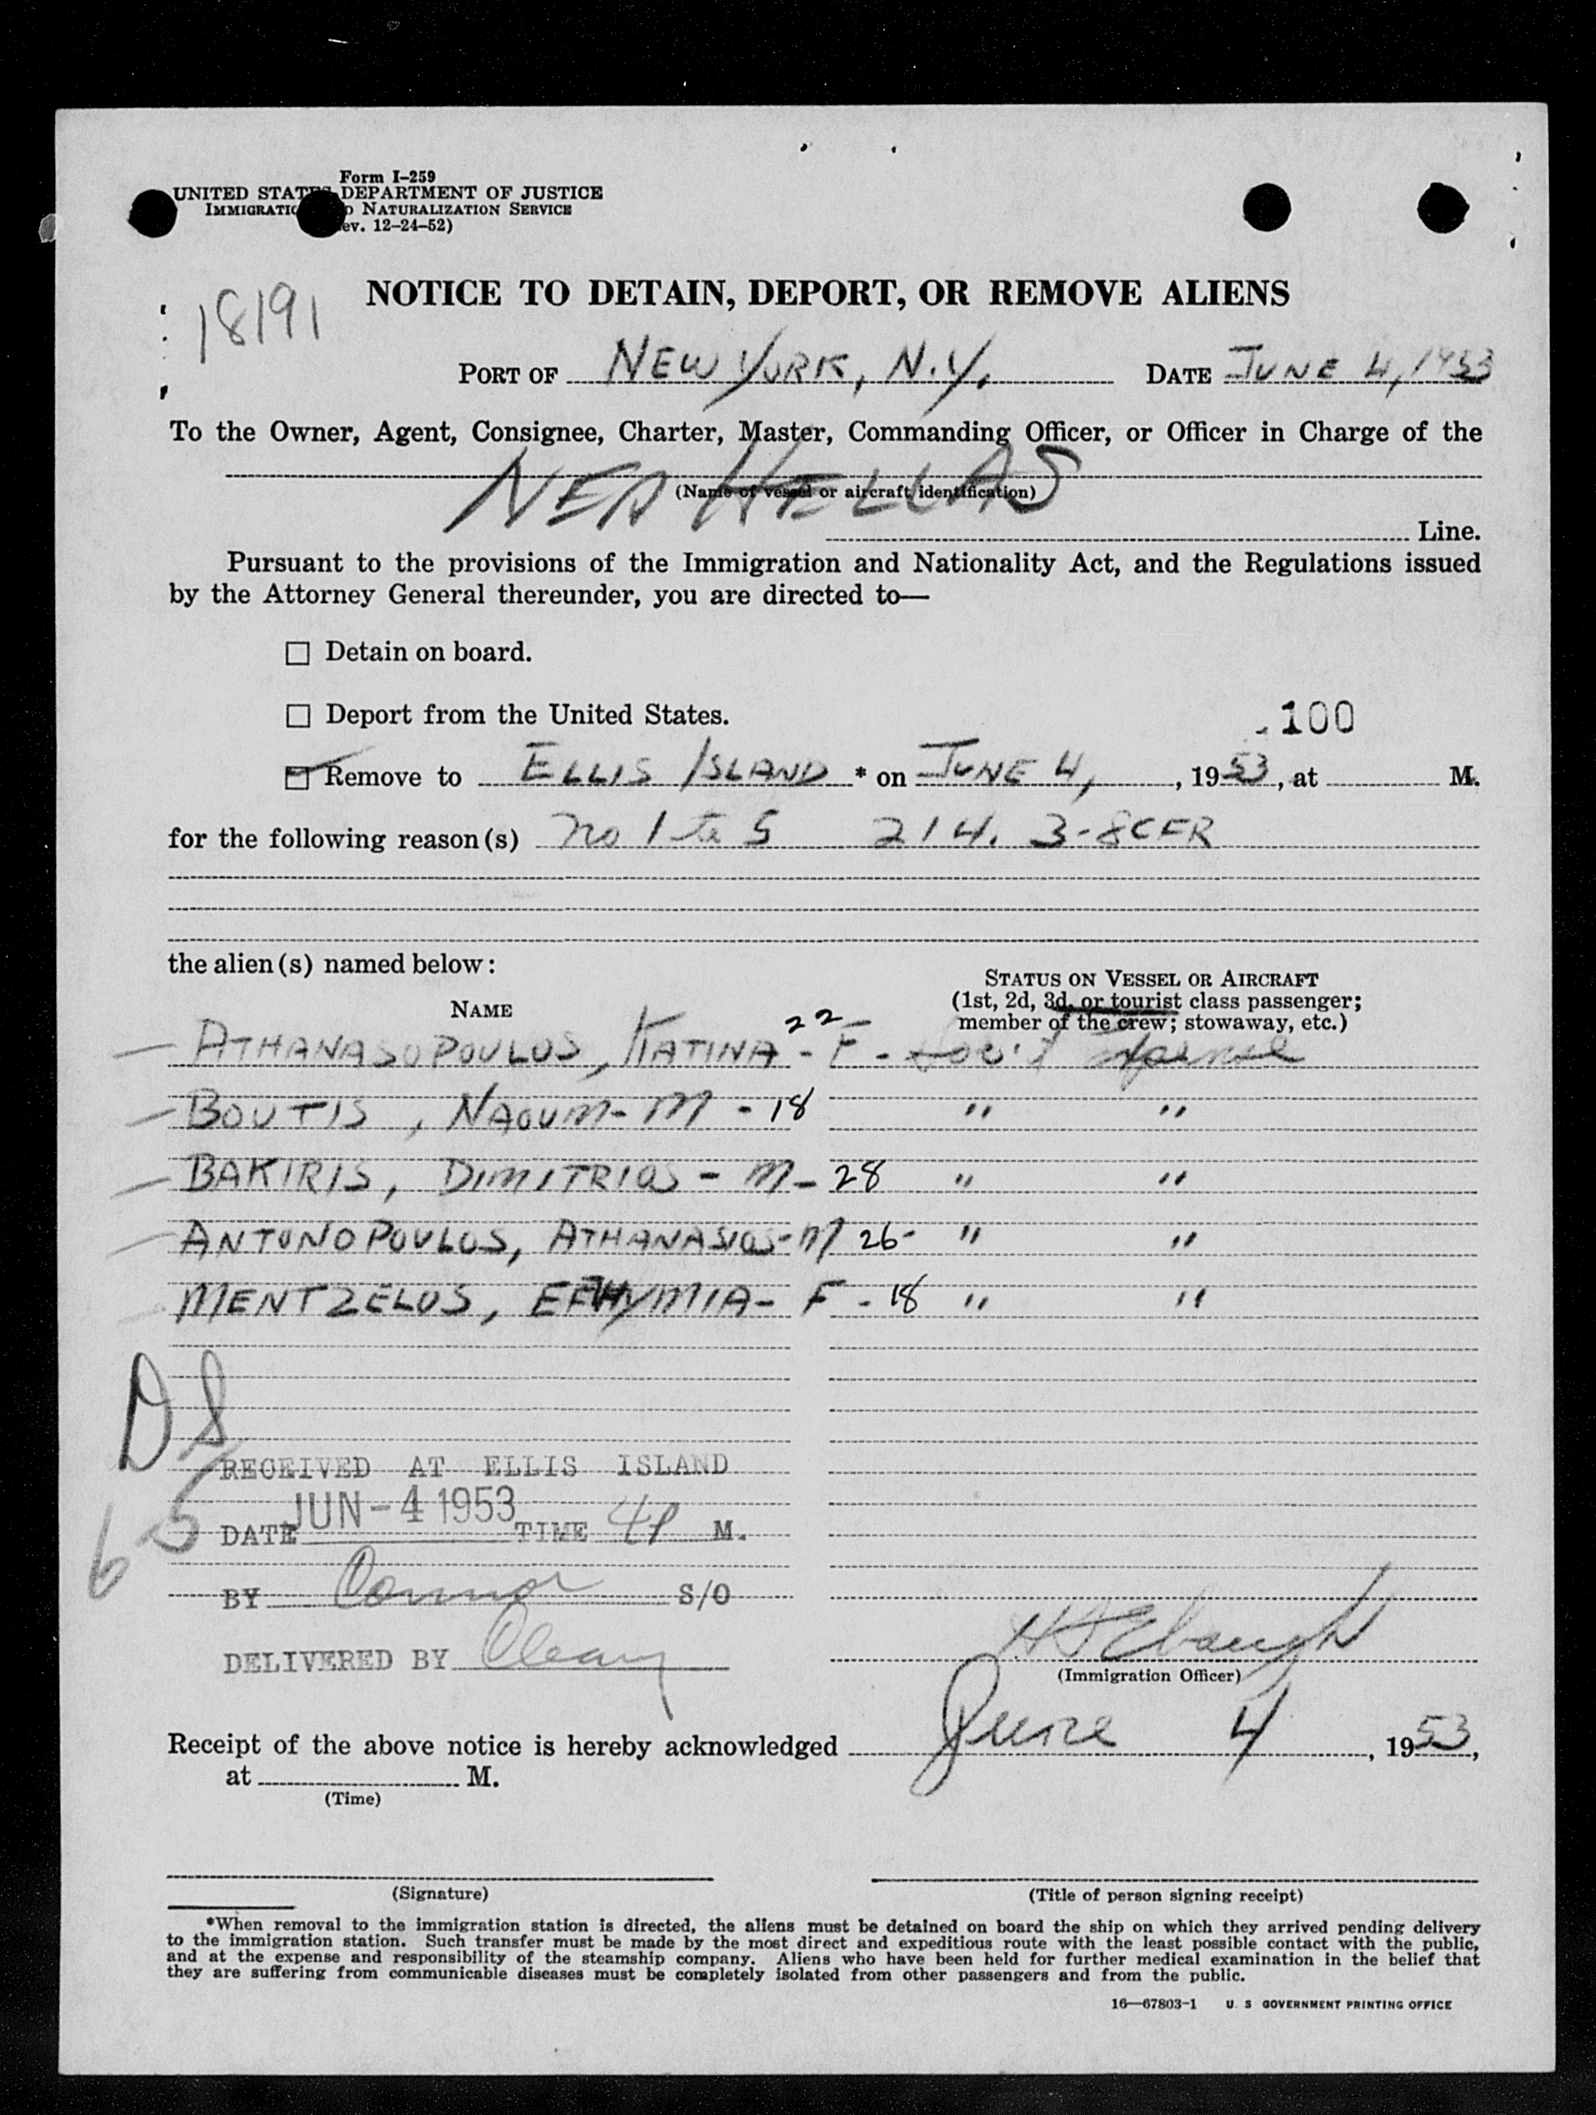 Form I-259
UNITED STATES DEPARTMENT OF JUSTICE
IMMIGRATION AND NATURALIZATION SERVICE
(Rev. 12-24-52)
18191
NOTICE TO DETAIN, DEPORT, OR REMOVE ALIENS
PORT OF NEW YORK, N.Y. DATE JUNE 4, 1953
To the Owner, Agent, Consignee, Charter, Master, Commanding Officer, or Officer in Charge of the
NEA HELLAS
(Name of vessel or aircraft identification)
Line.
Pursuant to the provisions of the Immigration and Nationality Act, and the Regulations issued
by the Attorney General thereunder, you are directed to—
Detain on board.
Deport from the United States.
.100
Remove to ELLIS ISLAND * on JUNE 4, , 1953, at M.
for the following reason(s) no 1 to 5 214. 3-8CFR
the alien(s) named below:
NAME
STATUS ON VESSEL OR AIRCRAFT
(1st, 2d, 3d, or tourist class passenger;
member of the crew; stowaway, etc.)
ATHANASOPOULOS, KATINA 22 - F - Gov't Expense
BOUTIS, NAOUM - M - 18 " "
BAKIRIS, DIMITRIOS - M - 28 " "
ANTONOPOULOS, ATHANASIOS - M 26 - " "
MENTZELOS, EFTHYMIA - F - 18 " "
DS
6-5
RECEIVED AT ELLIS ISLAND
DATE JUN - 4 1953 TIME 4P M.
BY Connor S/O
DELIVERED BY Cleary
H Ebaugh
(Immigration Officer)
Receipt of the above notice is hereby acknowledged June 4 , 1953,
at M.
(Time)
(Signature)
(Title of person signing receipt)
*When removal to the immigration station is directed, the aliens must be detained on board the ship on which they arrived pending delivery
to the immigration station. Such transfer must be made by the most direct and expeditious route with the least possible contact with the public,
and at the expense and responsibility of the steamship company. Aliens who have been held for further medical examination in the belief that
they are suffering from communicable diseases must be completely isolated from other passengers and from the public.
16—67803-1 U. S GOVERNMENT PRINTING OFFICE